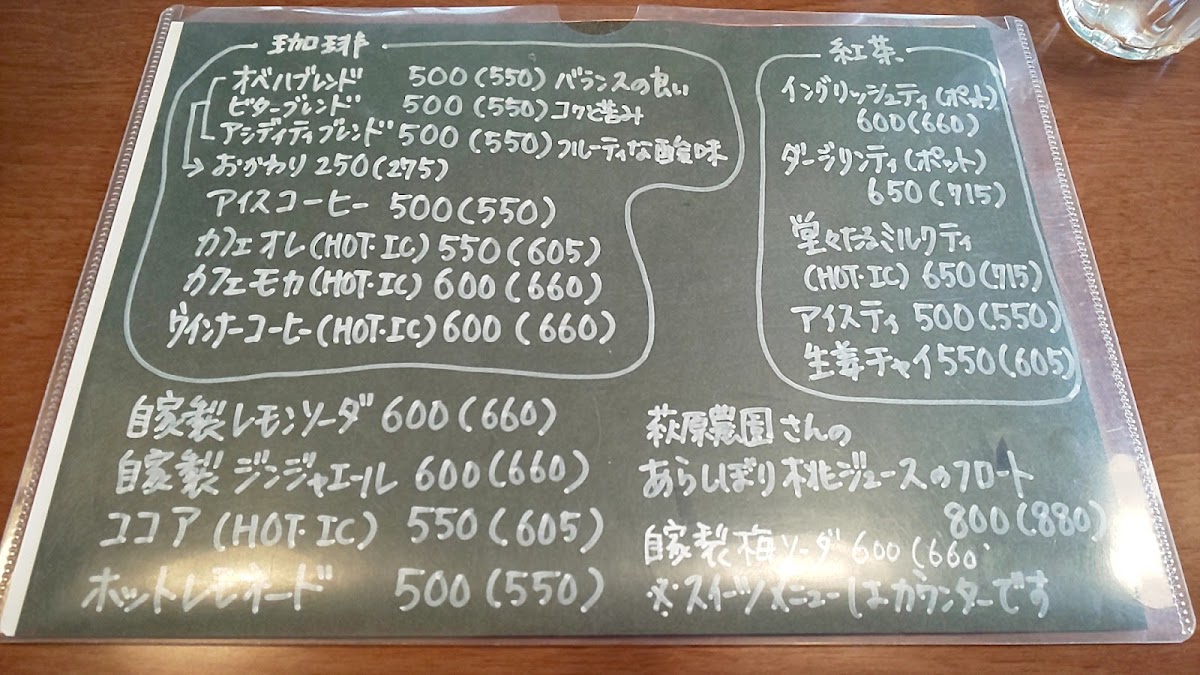 珈琲
オベハブレンド 500(550) バランスの良い
ビターブレンド 500(550) コクと苦み
アシディティブレンド 500(550) フルーティな酸味
おかわり 250(275)
アイスコーヒー 500(550)
カフェオレ(HOT・IC) 550(605)
カフェモカ(HOT・IC) 600(660)
ウインナーコーヒー(HOT・IC) 600(660)
紅茶
イングリッシュティ(ポット)
600(660)
ダージリンティ(ポット)
650(715)
堂々たるミルクティ
(HOT・IC) 650(715)
アイスティ 500(550)
生姜チャイ 550(605)
自家製レモンソーダ 600(660)
自家製ジンジャエール 600(660)
ココア(HOT・IC) 550(605)
ホットレモネード 500(550)
萩原農園さんの
あらしぼり桃ジュースのフロート
800(880)
自家製梅ソーダ 600(660
※スイーツメニューはカウンターです